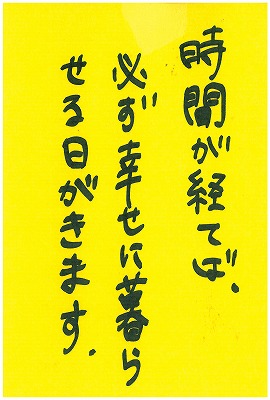 時間が経てば、
必ず幸せに暮ら
せる日がきます.